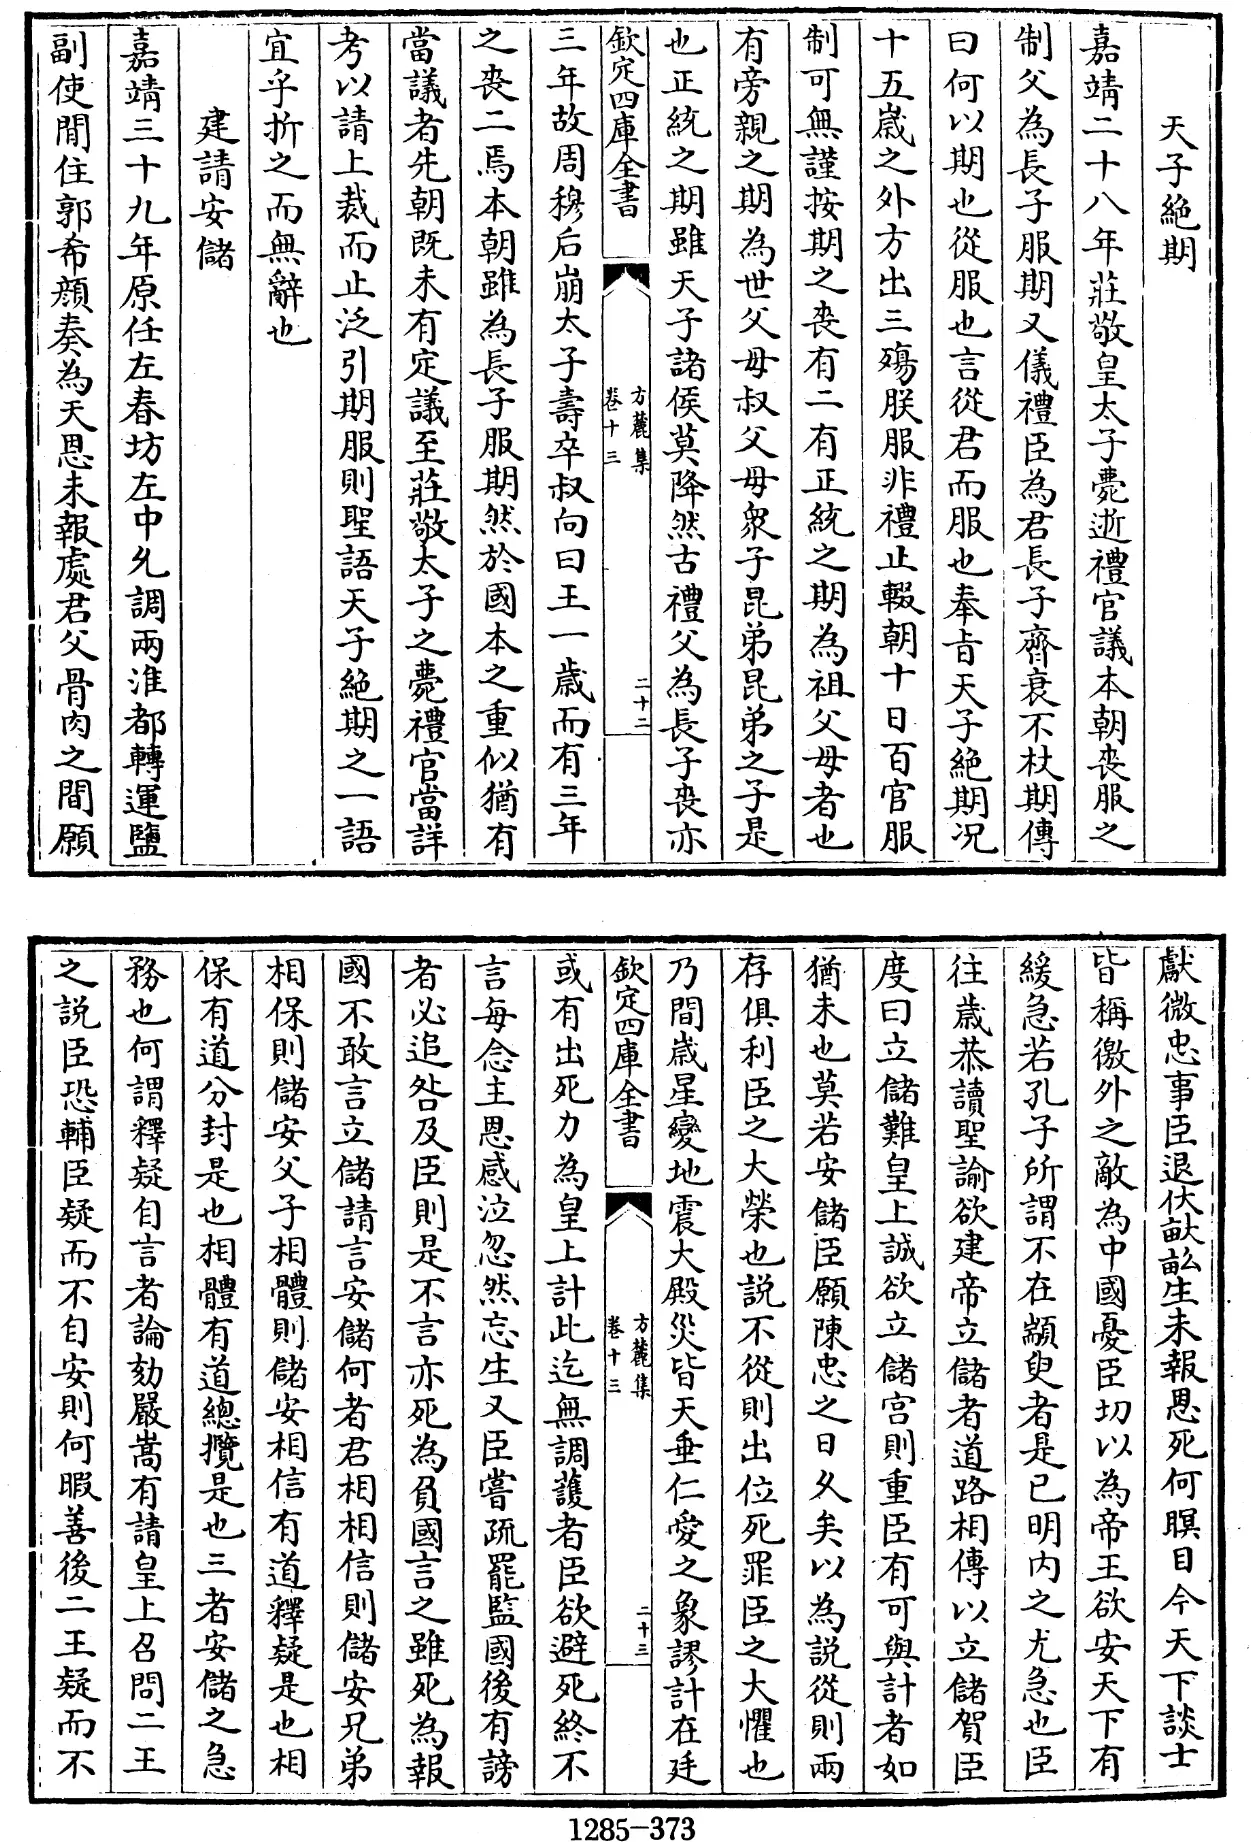 天子絶期
嘉靖二十八年莊敬皇太子薨逝禮官議本朝喪服之
制父為長子服期又儀禮臣為君長子齊衰不杖期傳
曰何以期也從服也言從君而服也奉㫖天子絶期况
十五歳之外方出三殤朕服非禮止輟朝十日百官服
制可無謹按期之喪有二有正統之期為祖父母者也
有旁親之期為世父母叔父母衆子昆弟昆弟之子是
也正統之期雖天子諸侯莫降然古禮父為長子喪亦
欽定四庫全書
方麓集
卷十三
二十二
三年故周穆后崩太子壽卒叔向曰王一歳而有三年
之喪二焉本朝雖為長子服期然於國本之重似猶有
當議者先朝既未有定議至莊敬太子之薨禮官當詳
考以請上裁而止泛引期服則聖語天子絶期之一語
宜乎折之而無辭也
建請安儲
嘉靖三十九年原任左春坊左中允調兩淮都轉運鹽
副使閒住郭希顔奏為天恩未報處君父骨肉之間願
獻微忠事臣退伏畎畝生未報恩死何瞑目今天下談士
皆稱徼外之敵為中國憂臣切以為帝王欲安天下有
緩急若孔子所謂不在顓臾者是已明内之尤急也臣
往歳恭讀聖諭欲建帝立儲者道路相傳以立儲賀臣
度曰立儲難皇上誠欲立儲宫則重臣有可與計者如
猶未也莫若安儲臣願陳忠之日久矣以為説從則兩
存俱利臣之大榮也説不從則出位死罪臣之大懼也
乃間歳星變地震大殿災皆天垂仁愛之象謬計在廷
欽定四庫全書
方麓集
卷十三
二十三
或有出死力為皇上計此迄無調䕶者臣欲避死終不
言每念主恩感泣忽然忘生又臣嘗疏罷監國後有謗
者必追咎及臣則是不言亦死為負國言之雖死為報
國不敢言立儲請言安儲何者君相相信則儲安兄弟
相保則儲安父子相體則儲安相信有道釋疑是也相
保有道分封是也相體有道總攬是也三者安儲之急
務也何謂釋疑自言者論劾嚴嵩有請皇上召問二王
之説臣恐輔臣疑而不自安則何暇善後二王疑而不
1285-373